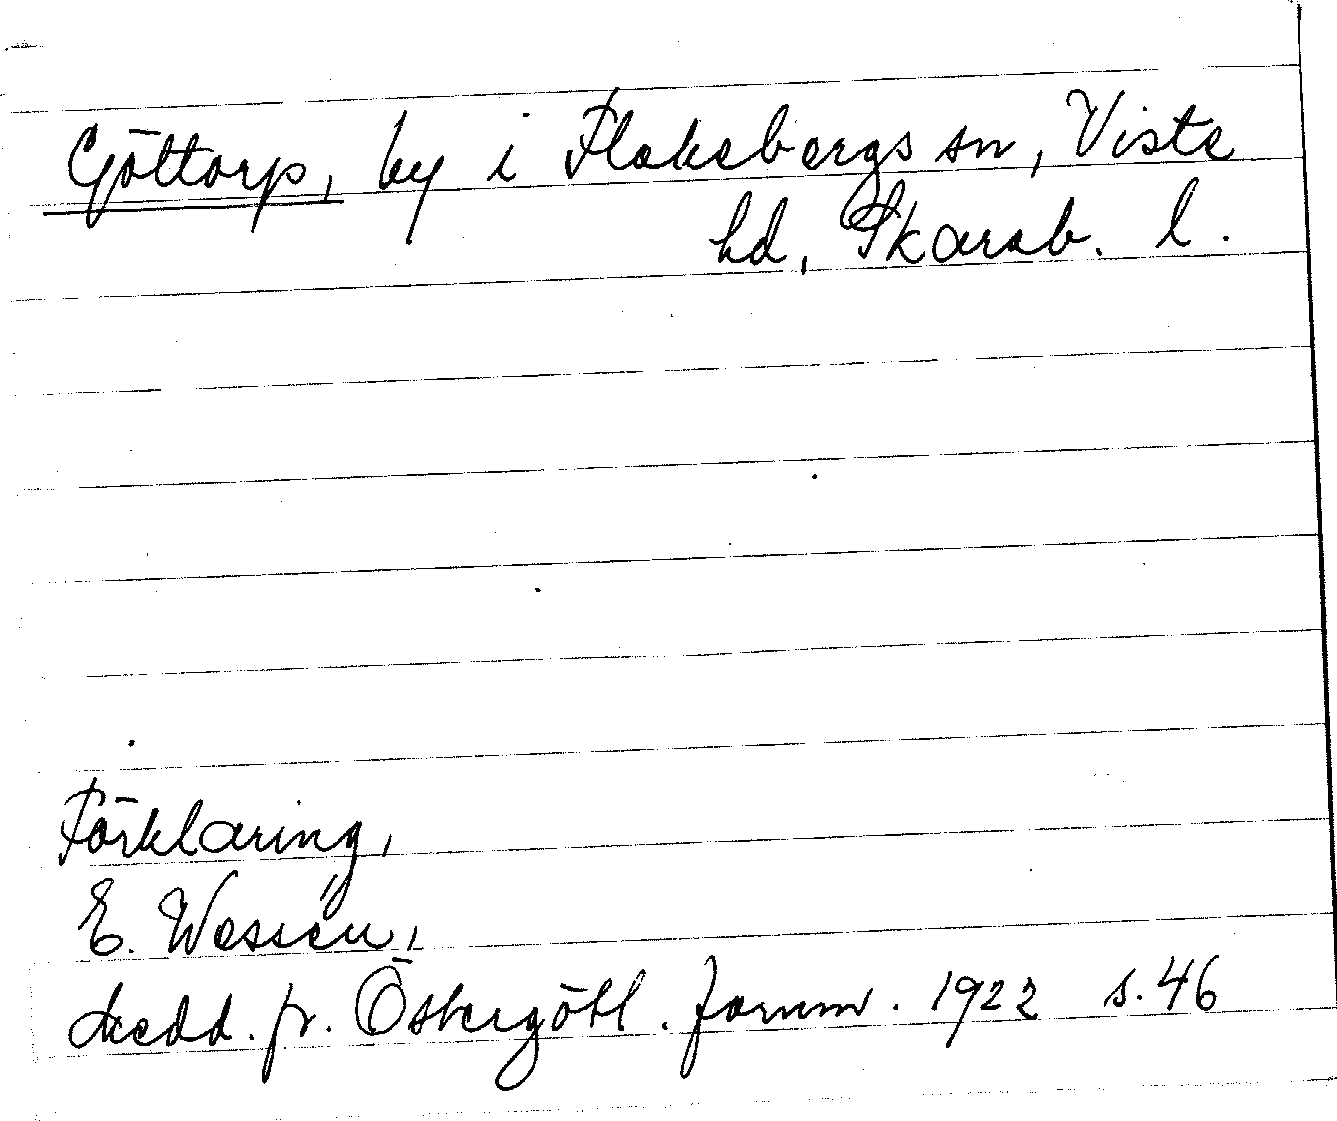 Göttorp, by i Flakebergs sn, Viste
hd, Skarab. l.
Förklaring,
E. Wessén,
Medd. fr. Östergötl. fornm. 1922 s. 46